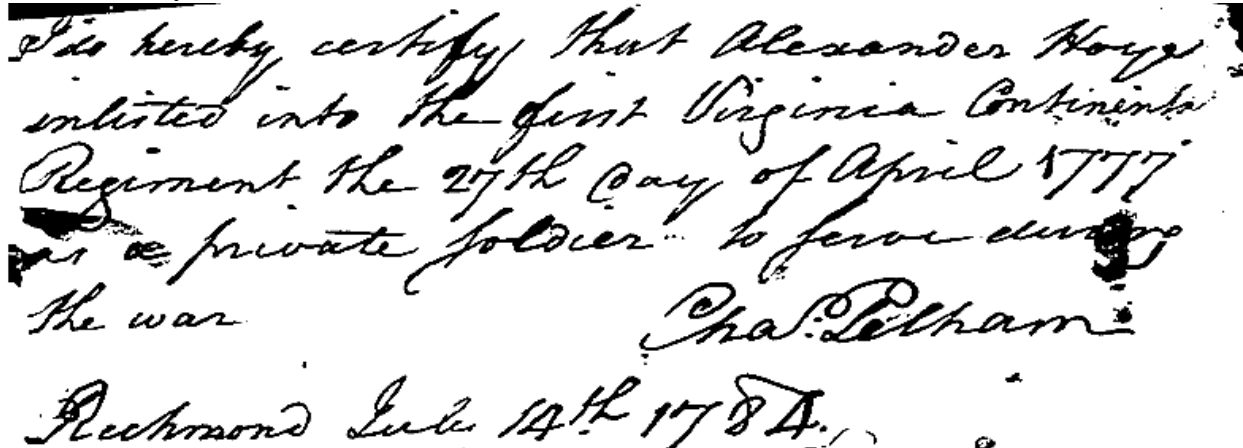 I do hereby certify that Alexander Hoye
inlisted into the first Virginia Continentl
Regiment the 27th day of April 1777
as a private soldier to serve during
the war
Chas. Pelham
Richmond July 14th 1784.